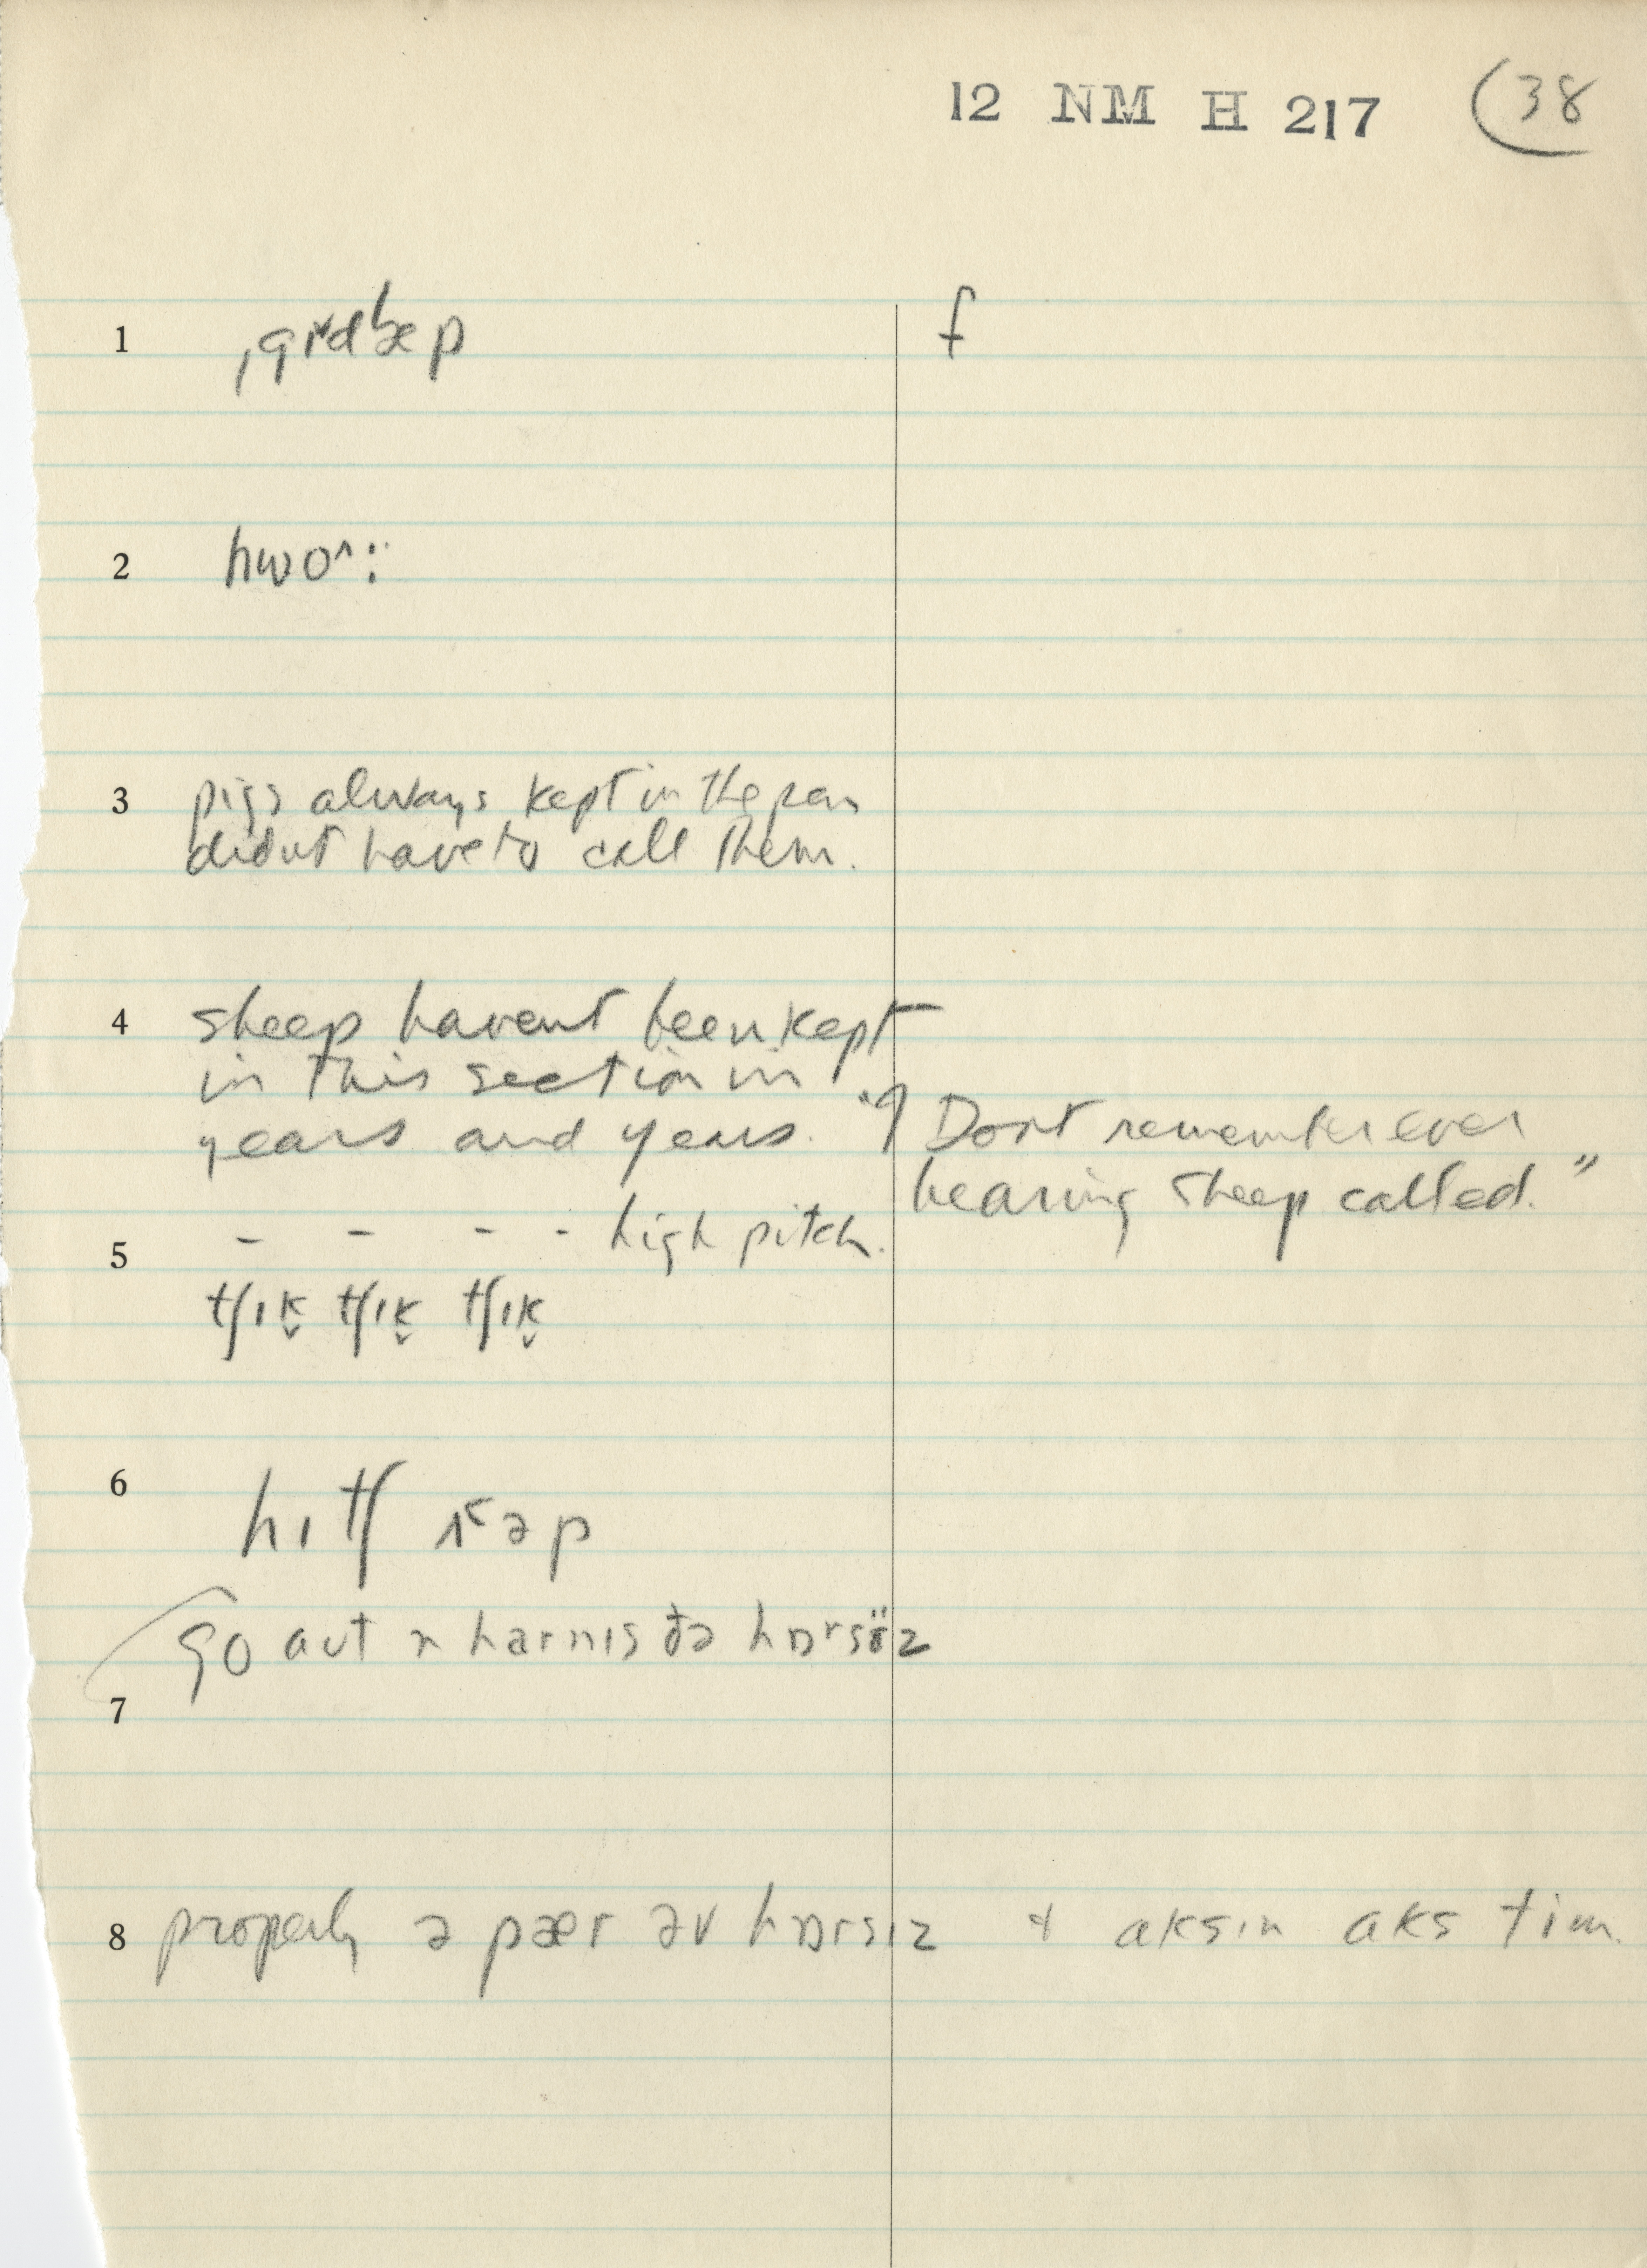 12 NM H 217 (38
1 ˌgɪˇdʰæp f
2 hwo^:
3 pigs always kept in the pen
didnt have to call them.
4 sheep havent been kept
in this section in
years and years. "I Dont remember ever
hearing sheep called."
- - - - high pitch.
5
tʃɪk̬ tʃɪk̬ tʃɪk̬
6 hɪtʃ əp
go aut n harnɪs ðə hɒrsïz
7
8 properly ə pær əv hɒrsɪz & aksɪn aks tim.